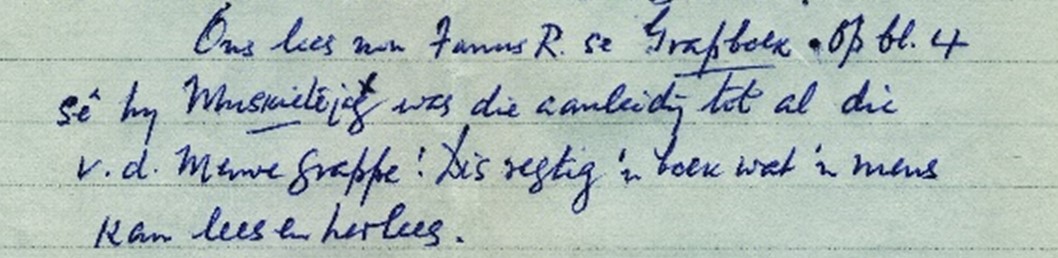 Ons lees nou Fanus R. se Grapboek. Op bl. 4
sê hy Muskietejag was die aanleidg tot al die
v.d. Merwe grappe! Dis regtig 'n boek wat 'n mens
kan lees en herlees.